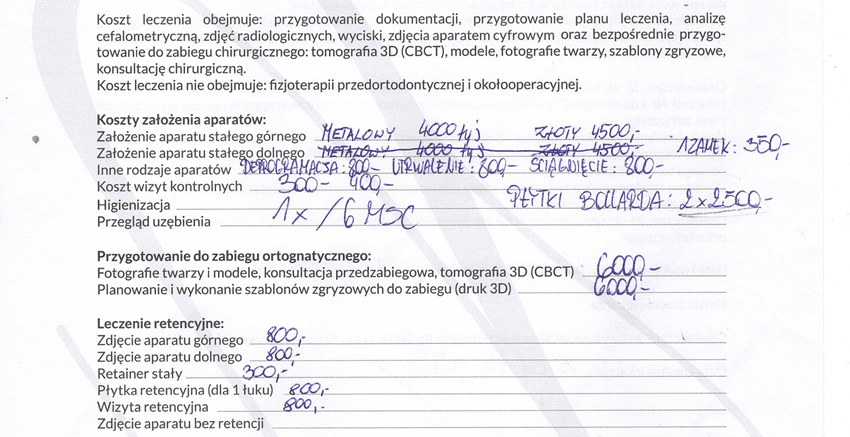 Koszt leczenia obejmuje: przygotowanie dokumentacji, przygotowanie planu leczenia, analizę
cefalometryczną, zdjęć radiologicznych, wyciski, zdjęcia aparatem cyfrowym oraz bezpośrednie przygo-
towanie do zabiegu chirurgicznego: tomografia 3D (CBCT), modele, fotografie twarzy, szablony zgryzowe,
konsultację chirurgiczną.
Koszt leczenia nie obejmuje: fizjoterapii przedortodontycznej i okołooperacyjnej.
Koszty założenia aparatów:
Założenie aparatu stałego górnego METALOWY 4000 tyś ZŁOTY 4500,-
Założenie aparatu stałego dolnego METALOWY 4000 tyś ZŁOTY 4500,- 1 ZAMEK: 350,-
Inne rodzaje aparatów DEPROGRAMACJA: 800,- UTRWALENIE: 800,- ŚCIĄGNIĘCIE: 800,-
Koszt wizyt kontrolnych 300,- 400,-
Higienizacja 1x/6 MSC PŁYTKI BOLLARDA: 2x2500,-
Przegląd uzębienia
Przygotowanie do zabiegu ortognatycznego:
Fotografie twarzy i modele, konsultacja przedzabiegowa, tomografia 3D (CBCT) 6000,-
Planowanie i wykonanie szablonów zgryzowych do zabiegu (druk 3D) 6000,-
Leczenie retencyjne:
Zdjęcie aparatu górnego 800,-
Zdjęcie aparatu dolnego 800,-
Retainer stały 300,-
Płytka retencyjna (dla 1 łuku) 800,-
Wizyta retencyjna 800,-
Zdjęcie aparatu bez retencji